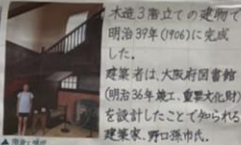 木造3階立ての建物で
明治39年(1906)に完成
した。
建築者は、大阪府図書館
(明治36年竣工、重要文化財)
を設計したことで知られる
建築家、野口孫市氏。